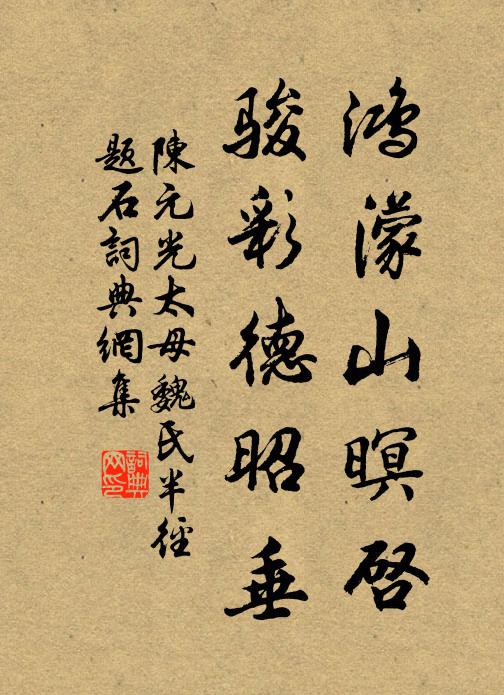 鸿濛山暝啓
骏彩德昭垂
陳元光太母魏氏半徑
题石詞典網集
詞典网印